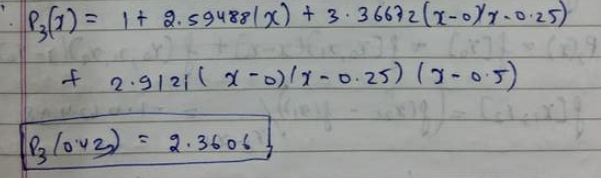 P₃(x) = 1 + 2.59488(x) + 3.36672(x-0)(x-0.25)
+ 2.9121(x-0)(x-0.25)(x-0.5)
P₃(0.42) = 2.3606